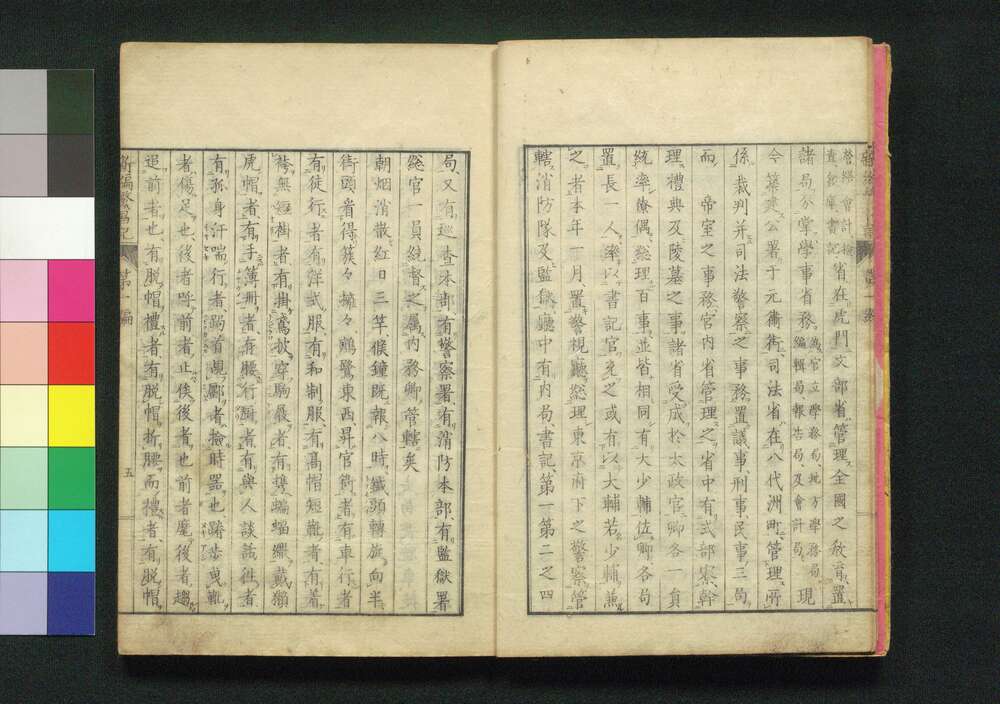 省在虎門文部省管理全國之教育置
諸局分掌學事省務為官立學務局地方學務局編輯局報告局及會計局現
今築建公署于元衛衙司法省在八代洲町管理所
係裁判并司法警察之事務置議事刑事民事三局
而帝室之事務宮内省管理之省中有式部寮幹
理禮典及陵墓之事諸省受成於太政官卿各一員
統率僚偶総理百事並皆相同有大少輔佐卿各局
置長一人率以書記官充之或有以大輔若少輔兼
之者本年一月置警視廳総理東京府下之警察管
轄消防隊及監獄廳中有内局書記第一第二之四
局又有巡查本部有警察署有消防本部有監獄署
総官一員統督之属内務卿管轄矣
朝烟消散紅日三竿候鐘既報八時鍼頭轉旋向半
街頭看得簇々擁々鵷鷺東西昇官衙者有車行者
有徒行者有洋式服有和制服有高帽短靴者有着
袴無短褂者有掛鳶披穿駒屐者有携蝙蝠繖戴獺
虎帽者有手簿冊者有腰行厨者有與人談話往者
有孤身汗喘行者跼首覗鄽者撿時器也蹐步曳靴
者傷足也後者呼前者止俟後者也前者麾後者趨
追前者也有脱帽禮者有脱帽折腰而禮者有脱帽
新編 第十編 五